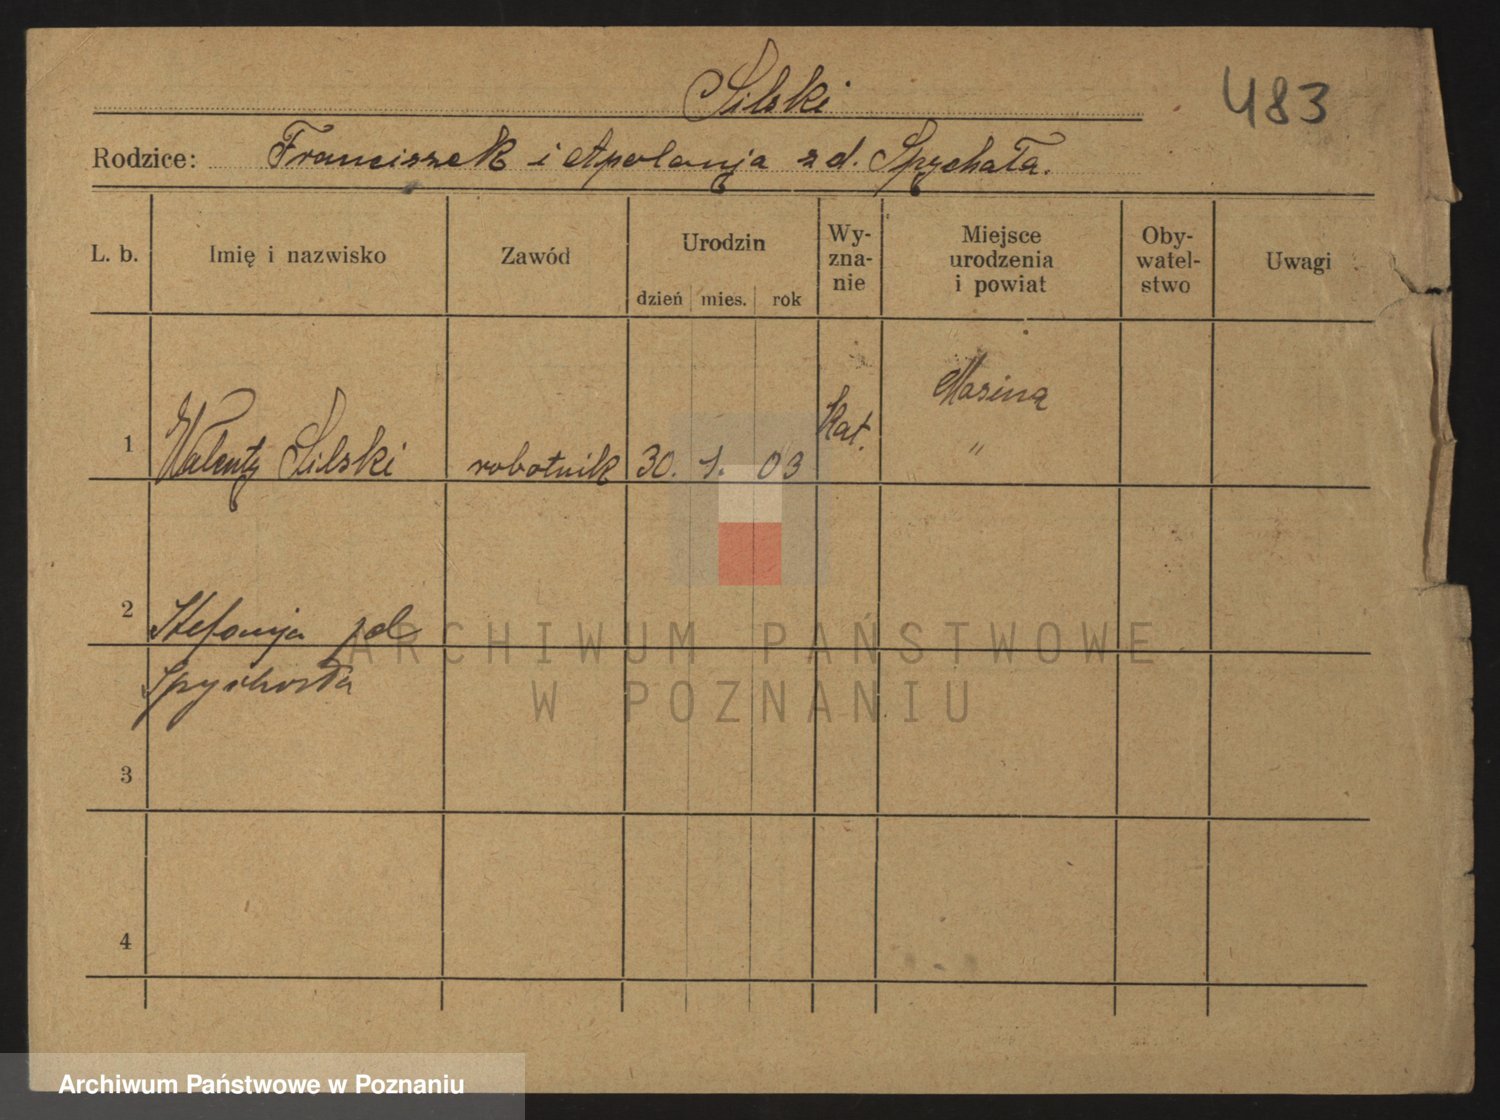 Silski
483
Rodzice: Franciszek i Apolonja z d. Spychała.
L. b. Imię i nazwisko Zawód Urodzin dzień mies. rok Wy-zna-nie Miejsce urodzenia i powiat Oby-watel-stwo Uwagi
1 Walenty Silski robotnik 30. 1. 03 Kat. Mosina
"
2 Stefanja zd
Spychała
3
4
ARCHIWUM PAŃSTWOWE
W POZNANIU
Archiwum Państwowe w Poznaniu